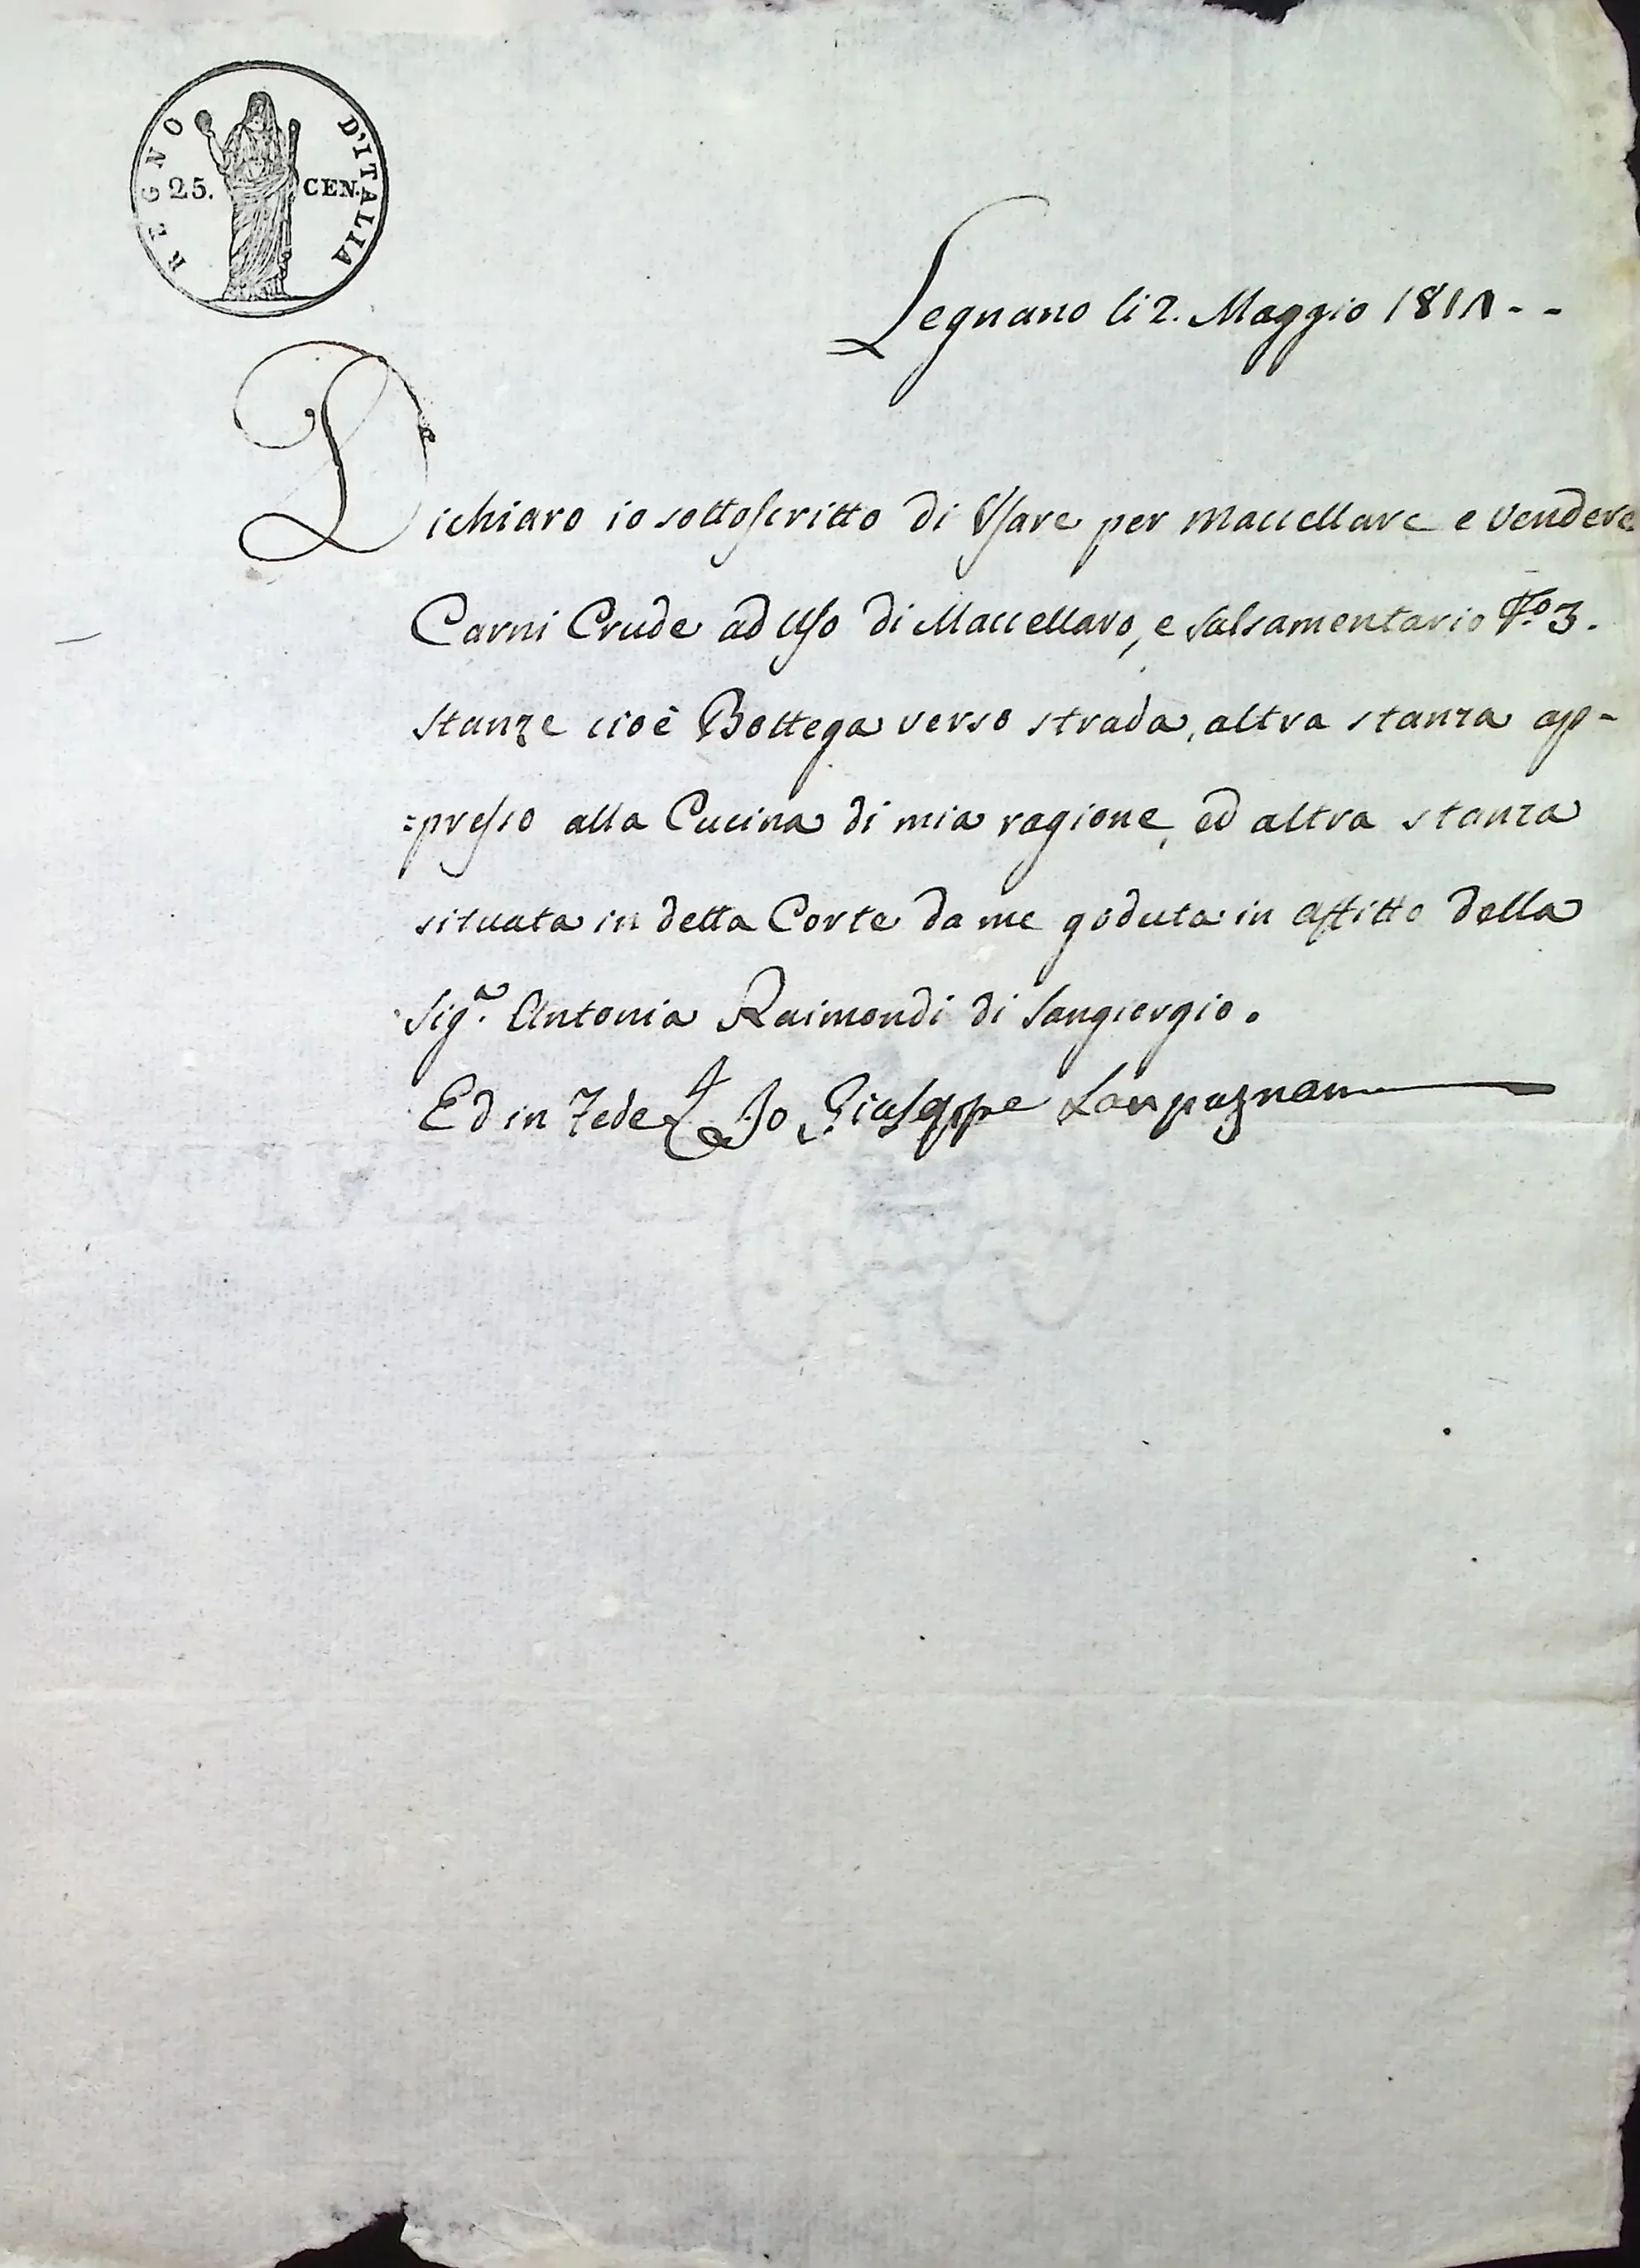 REGNO D'ITALIA
25. CEN.
Legnano li 2. Maggio 1811 - -
Dichiaro io sottoscritto di Usare per maccellare e vendere
Carni Crude ad Uso di Maccellaro, e Salsamentario N.º 3.
Stanze cioè Bottega verso strada, altra stanza ap-
=presso alla Cucina di mia ragione, ed altra stanza
situata in detta Corte da me goduta in affitto della
Sig.ª Antonia Raimondi di Sangiorgio.
Ed in Fede Io Giuseppe